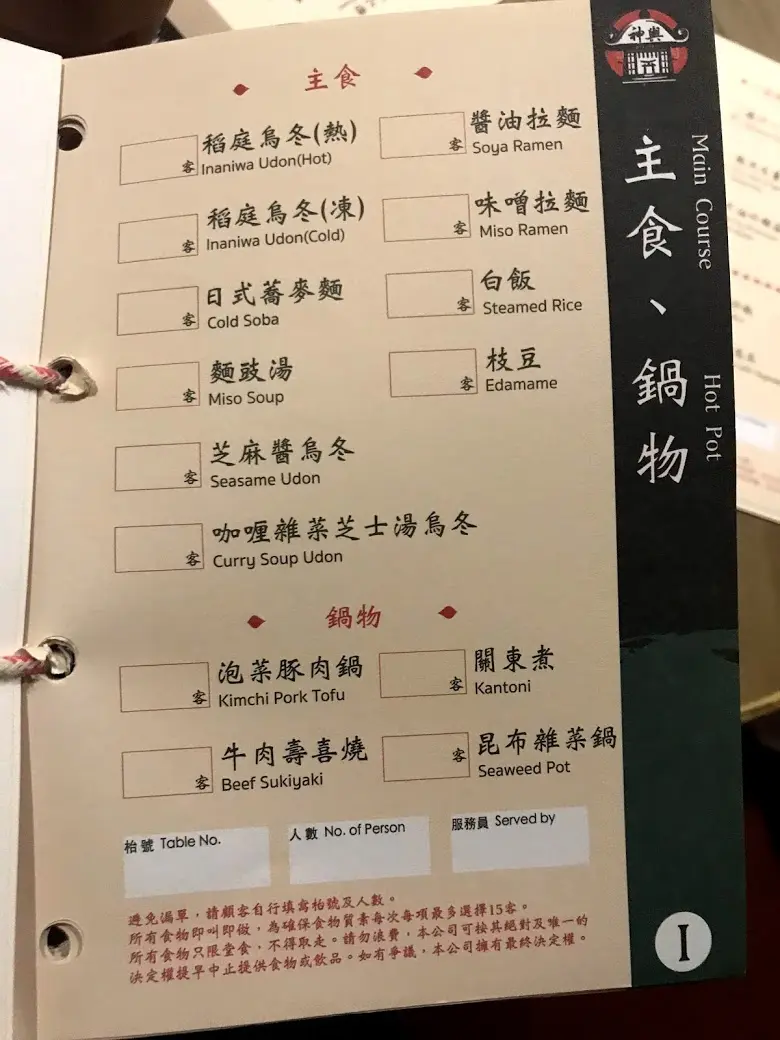 神輿
主食
稻庭烏冬(熱)
Inaniwa Udon(Hot)
客
醬油拉麵
Soya Ramen
客
稻庭烏冬(凍)
Inaniwa Udon(Cold)
客
味噌拉麵
Miso Ramen
客
日式蕎麥麵
Cold Soba
客
白飯
Steamed Rice
客
麵豉湯
Miso Soup
客
枝豆
Edamame
客
芝麻醬烏冬
Seasame Udon
客
咖喱雜菜芝士湯烏冬
Curry Soup Udon
客
鍋物
泡菜豚肉鍋
Kimchi Pork Tofu
客
關東煮
Kantoni
客
牛肉壽喜燒
Beef Sukiyaki
客
昆布雜菜鍋
Seaweed Pot
客
枱號 Table No.
人數 No. of Person
服務員 Served by
避免漏單，請顧客自行填寫枱號及人數。
所有食物即叫即做，為確保食物質素每次每項最多選擇15客。
所有食物只限堂食，不得取走。請勿浪費，本公司可按其絕對及唯一的
決定權提早中止提供食物或飲品。如有爭議，本公司擁有最終決定權。
主食、鍋物
Main Course
Hot Pot
I